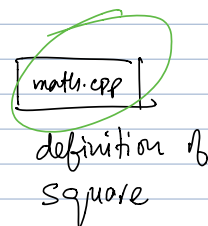 math.cpp
definition of
square